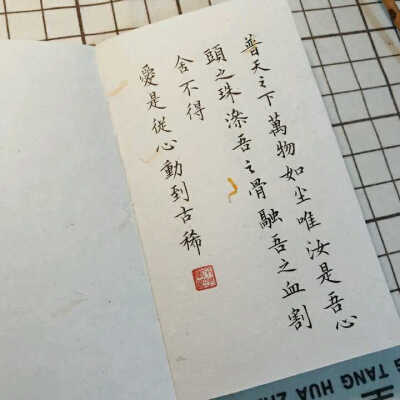 普天之下萬物如尘唯汝是吾心
頭之珠漆吾之骨融吾之血割
舍不得
愛是従心動到古稀
TANG HUA ZH